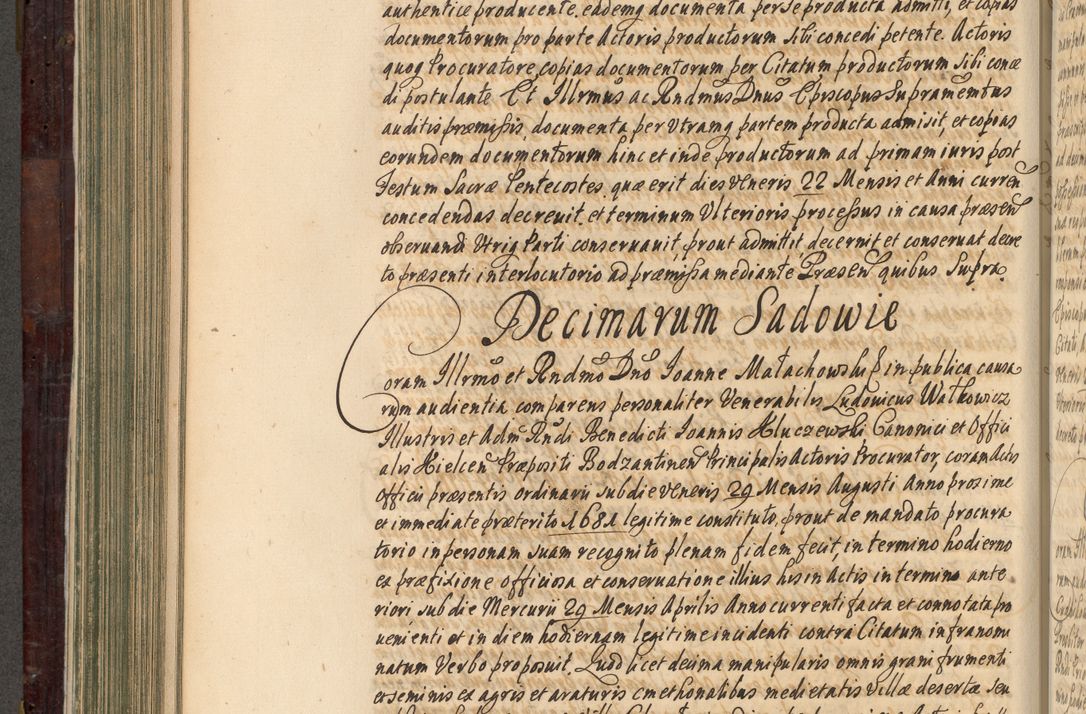 authentice producente, eademq documenta per se producta admitti, et copias
documentorum pro parte Actoris productorum sibi concedi petente. Actoris
quoq Procuratore, copias documentorum per Citatum productorum Sibi conce
di postulante Et Illrmus ac Rndmus Dnus Episcopus Supramemtus
auditis præmissis, documenta per Utramq partem producta admisit, et copias
eorundem documentorum hinc et inde productorum ad primam iuris post
Festum Sacræ Pentecostes, quæ erit dies Veneris 22 Mensis et Anni curren
concedendas decrevit, et terminum Ulterioris processus in causa præsen
observandi Utriq Parti conservavit, prout admittit decernit et conservat decre
to præsenti interlocutorio ad præmissa mediante Præsen quibus Supra
Decimarum Sadowie
Coram Illrmo et Rndmo Dno Ioanne Małachowski E in publica causa
rum audientia comparens personaliter Venerabilis Ludovicus Wałkowicz
Illustris et Adm Rndi Benedicti Ioannis Kluczewski Canonici et Offici
alis Kielcen Præpositi Bodzantinen Principalis Actoris Procurator, coram Actis
officii præsentis ordinarii sub die Veneris 29 Mensis Augusti Anno proxime
et immediate præterito 1681 legitime constituto, prout de mandato procura
torio in personam suam recognito plenam fidem fecit, in termino hodierno
ex præfixione officiosa et conservatione illius hic in Actis in termino ante
riori sub die Mercurii 29 Mensis Aprilis Anno currenti facta et connotata pro
venienti et in diem hodiernam legitime incidenti contra Citatum infranomi
natum Verbo proposuit. Quod licet decima manipularis omnis grani frumenti
et seminis ex agris et araturis cmethonalibus medietatis Villæ desertæ seu